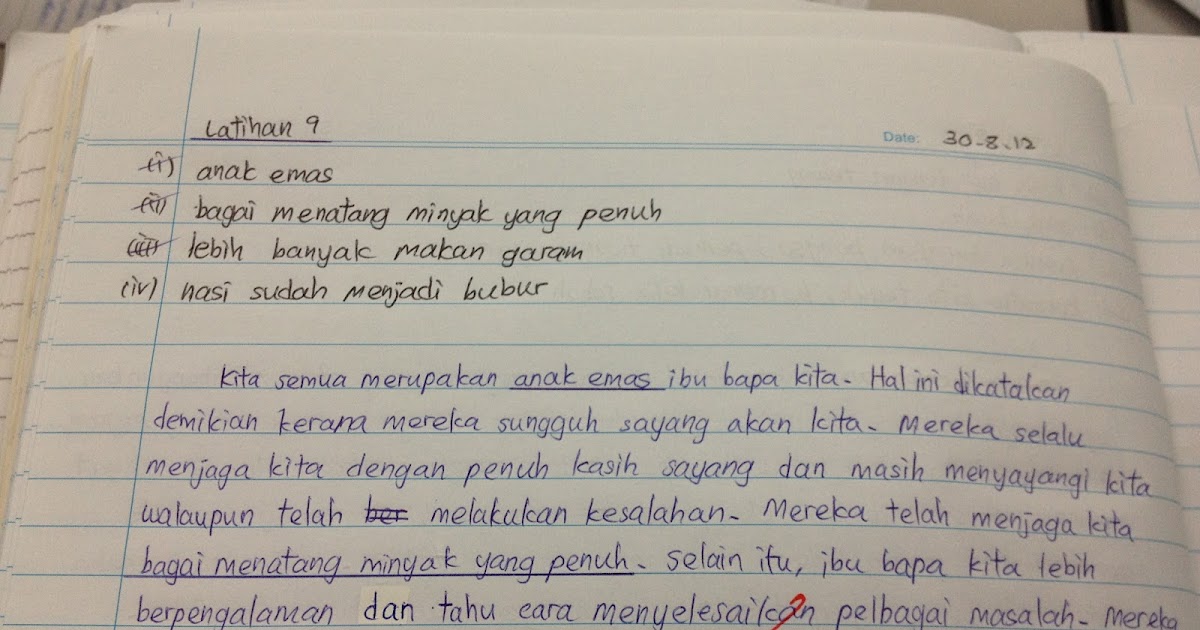 Latihan 9
Date: 30-8-12
(i) anak emas
(ii) bagai menatang minyak yang penuh
(iii) lebih banyak makan garam
(iv) nasi sudah menjadi bubur
Kita semua merupakan anak emas ibu bapa kita. Hal ini dikatakan
demikian kerana mereka sungguh sayang akan kita. Mereka selalu
menjaga kita dengan penuh kasih sayang dan masih menyayangi kita
walaupun telah ber melakukan kesalahan. Mereka telah menjaga kita
bagai menatang minyak yang penuh. Selain itu, ibu bapa kita lebih
berpengalaman dan tahu cara menyelesaikan pelbagai masalah. Mereka